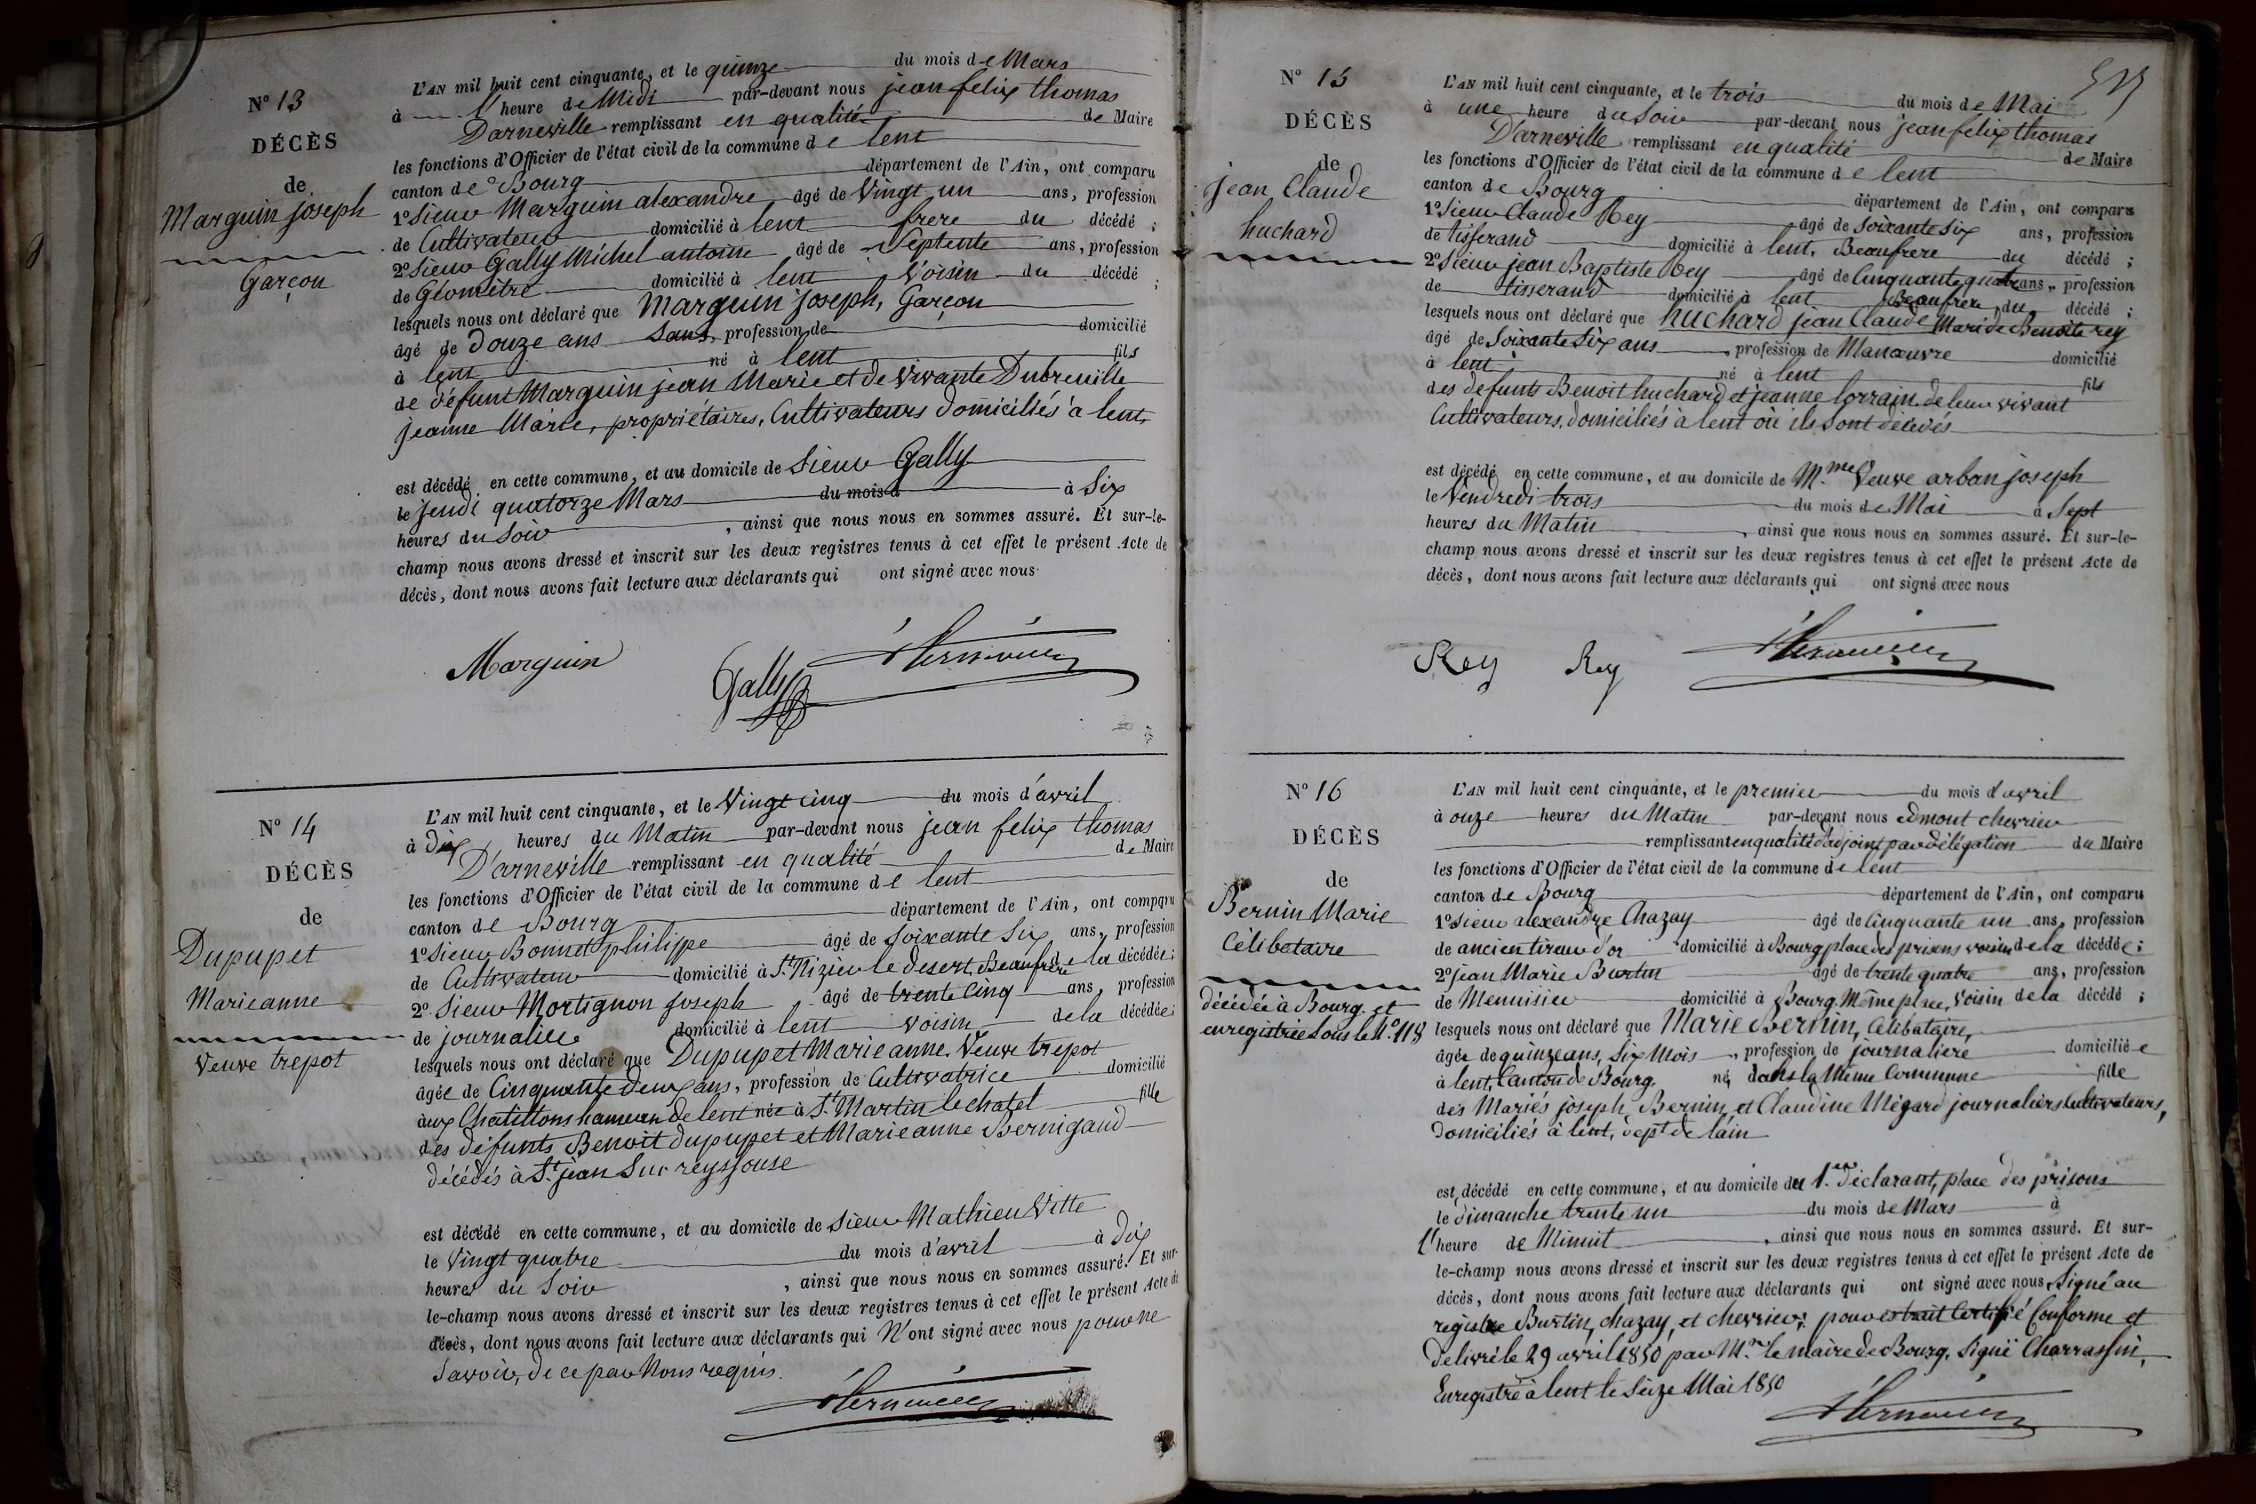 N° 13
DÉCÈS
de
Marguin joseph
Garçon
L'AN mil huit cent cinquante, et le quinze du mois de Mars
à l' heure de Midi par-devant nous jean felix thomas
Darneville remplissant en qualité de Maire
les fonctions d'Officier de l'état civil de la commune de lent
canton de Bourg département de l'Ain, ont comparu
1° Sieur Marguin alexandre âgé de Vingt un ans, profession
de Cultivateur domicilié à lent frere du décédé ;
2° Sieur Gally Michel antoine âgé de Septente ans, profession
de Géomètre domicilié à lent Voisin du décédé ;
lesquels nous ont déclaré que Marguin joseph, Garçon
âgé de douze ans Sans profession de domicilié
à lent né à lent fils
de défunt Marguin jean Marie et de Vivante Dubreuille
jeanne Marie, propriétaires, Cultivateurs domiciliés à lent,
est décédé en cette commune, et au domicile de Sieur Gally
le jeudi quatorze Mars du mois d à Six
heures du Soir , ainsi que nous nous en sommes assuré. Et sur-le-
champ nous avons dressé et inscrit sur les deux registres tenus à cet effet le présent Acte de
décès, dont nous avons fait lecture aux déclarants qui ont signé avec nous
Marguin
Gally
N° 14
DÉCÈS
de
Dupupet
Marieanne
Veuve trepot
L'AN mil huit cent cinquante, et le Vingt cinq du mois d'avril
à Dix heures du Matin par-devant nous jean felix thomas
D'arneville remplissant en qualité de Maire
les fonctions d'Officier de l'état civil de la commune de lent
canton de Bourg département de l'Ain, ont comparu
1° Sieur Bonnet philippe âgé de Soixante Six ans, profession
de Cultivateur domicilié à St. Nizier le desert, Beaufrere de la décédée ;
2° Sieur Mortignon joseph âgé de trente Cinq ans, profession
de journalier domicilié à lent voisin de la décédée ;
lesquels nous ont déclaré que Dupupet Marieanne. Veuve trepot
âgée de Cinquante deux ans, profession de Cultivatrice domicilié
aux Chatillons hameau de lent née à St. Martin le chatel fille
des défunts Benoit dupupet et Marieanne Bernigaud
décédés à St. jean Sur reyssouse
est décédé en cette commune, et au domicile de Sieur Mathieu Vitte
le Vingt quatre du mois d'avril à dix
heures du Soir , ainsi que nous nous en sommes assuré. Et sur-
le-champ nous avons dressé et inscrit sur les deux registres tenus à cet effet le présent Acte de
décès, dont nous avons fait lecture aux déclarants qui N'ont signé avec nous pour ne
Savoir, de ce par Nous requis.
N° 15
DÉCÈS
de
jean Claude
huchard
L'AN mil huit cent cinquante, et le trois du mois de Mai
à une heure du Soir par-devant nous jean felix thomas
D'arneville remplissant en qualité de Maire
les fonctions d'Officier de l'état civil de la commune de lent
canton de Bourg département de l'Ain, ont comparu
1° Sieur Claude Rey âgé de Soixante Six ans, profession
de tisserand domicilié à lent, Beaufrere du décédé ;
2° Sieur jean Baptiste Rey âgé de Cinquante quatre ans, profession
de tisserand domicilié à lent Beaufrere du décédé ;
lesquels nous ont déclaré que huchard jean Claude Mari de Benoite rey
âgé de Soixante Six ans , profession de Manœuvre domicilié
à lent né à lent fils
des defunts Benoit huchard et jeanne lorrain. de leur vivant
Cultivateurs, domiciliés à lent où ils Sont décédés
est décédé en cette commune, et au domicile de M.me Veuve arban joseph
le Vendredi trois du mois de Mai à Sept
heures du Matin , ainsi que nous nous en sommes assuré. Et sur-le-
champ nous avons dressé et inscrit sur les deux registres tenus à cet effet le présent Acte de
décès, dont nous avons fait lecture aux déclarants qui ont signé avec nous
Rey Rey
N° 16
DÉCÈS
de
Bernin Marie
Célibataire
décédée à Bourg et
enregistrée Sous le N.° 118
L'AN mil huit cent cinquante, et le premier du mois d'avril
à onze heures du Matin par-devant nous edmont chevrier
remplissant en qualité d'adjoint par délégation du Maire
les fonctions d'Officier de l'état civil de la commune de lent
canton de Bourg département de l'Ain, ont comparu
1° Sieur alexandre Chazay âgé de Cinquante un ans, profession
de ancien tireur d'or domicilié à Bourg place des prisons voisin de la décédée ;
2° jean Marie Burtin âgé de trente quatre ans, profession
de Menuisier domicilié à Bourg Même place, Voisin de la décédé ;
lesquels nous ont déclaré que Marie Bernin, Célibataire,
âgée de quinze ans, Six Mois , profession de journaliere domiciliée
à lent, Canton de Bourg né dans la Même Commune fille
des Mariés joseph Bernin et Claudine Mégard journaliers Cultivateurs,
domiciliés à lent, dept de l'ain
est décédé en cette commune, et au domicile du 1.er déclarant, place des prisons
le dimanche trente un du mois de Mars à
l' heure de Minuit , ainsi que nous nous en sommes assuré. Et sur-
le-champ nous avons dressé et inscrit sur les deux registres tenus à cet effet le présent Acte de
décès, dont nous avons fait lecture aux déclarants qui ont signé avec nous Signé au
registre Burtin, chazay, et chevrier; pour extrait Certifié Conforme et
Délivré le 29 avril 1850 par M.r le maire de Bourg. Signé Charrassin,
Enregistré à lent le Seize Mai 1850